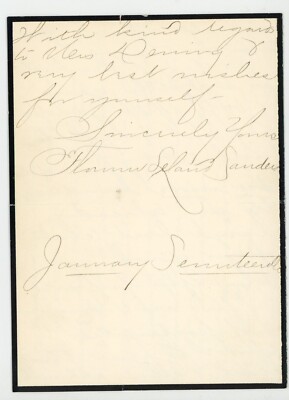 With kind regards
to Mrs Deming &
my best wishes
for yourself –
Sincerely Yours
Florence
January Seventeenth